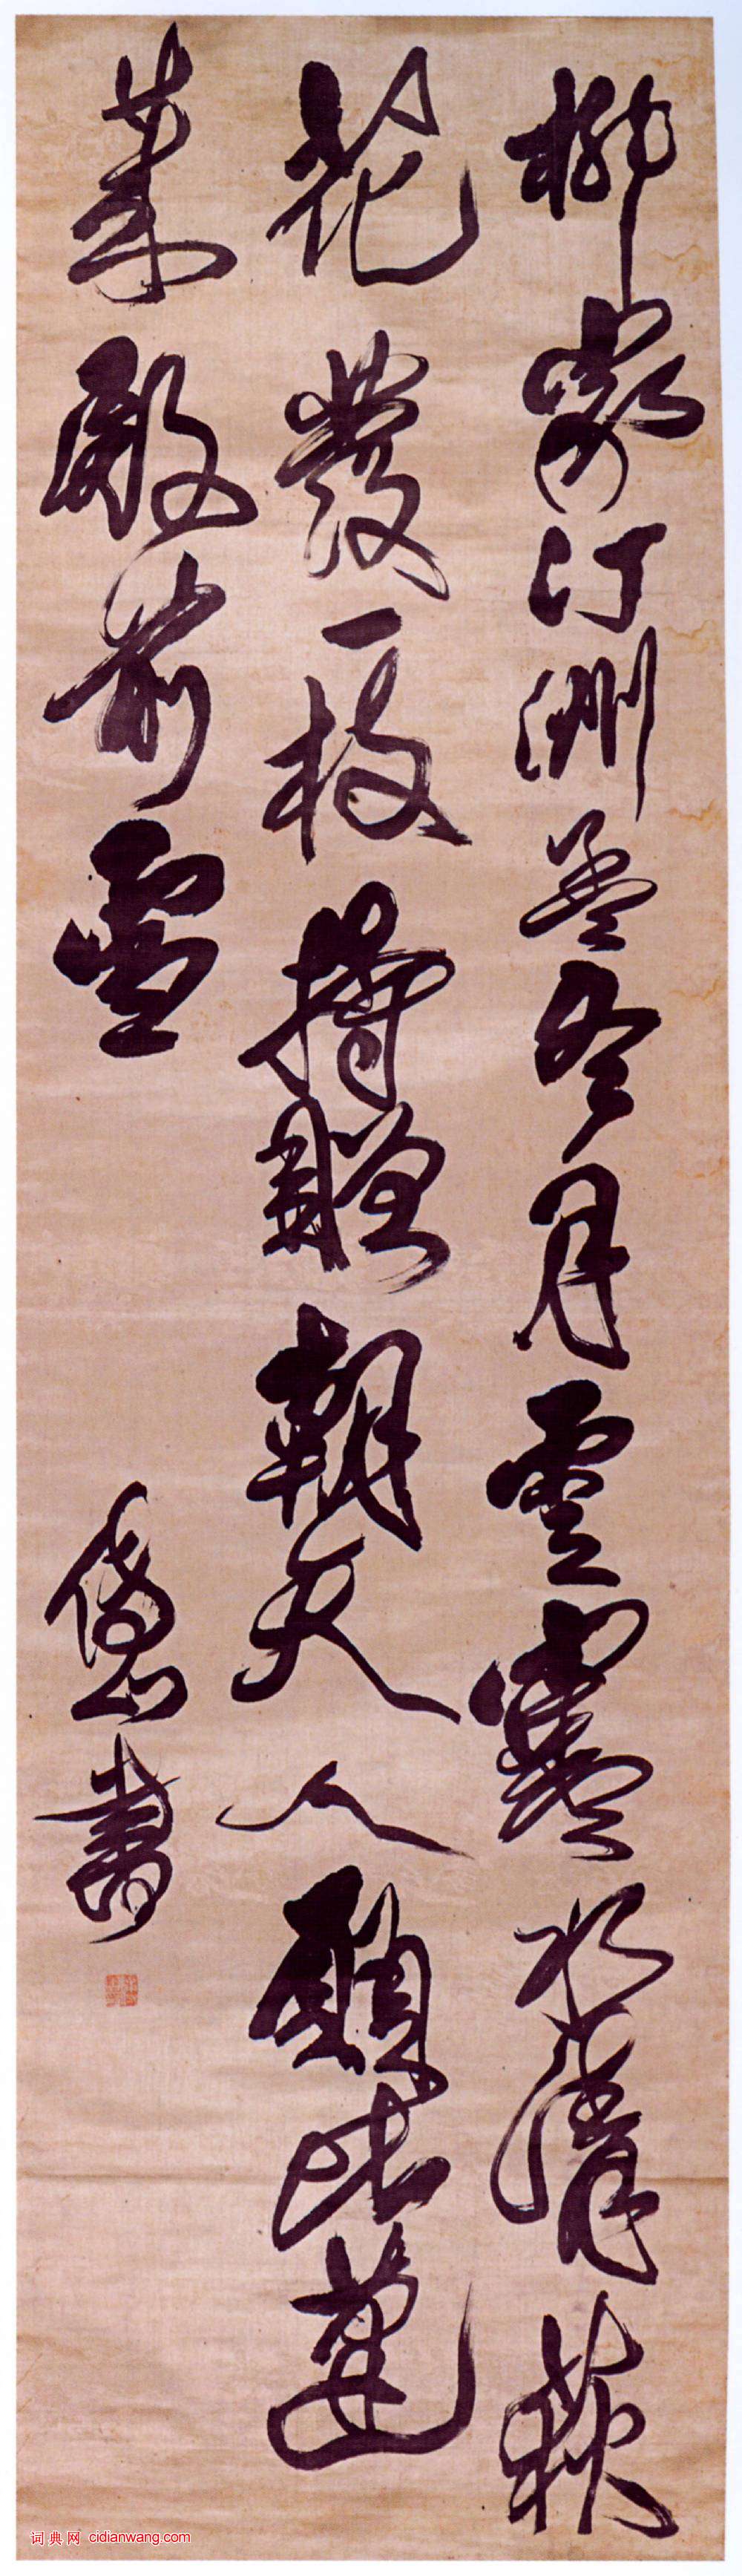 柳家汀洲孟冬月雲寒水清荻
花發一枝持贈朝天人願比蓬
萊殿前雪 傅山書
词典网 cidianwang.com